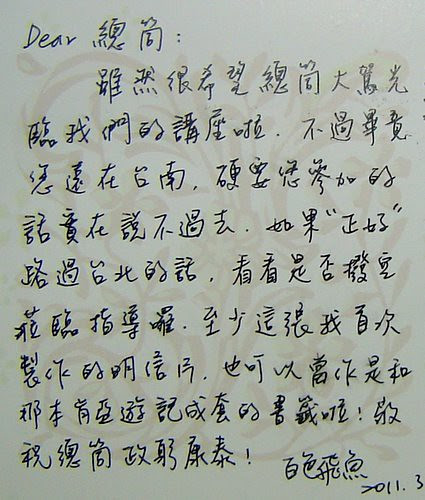 Dear 總筒:
雖然很希望總筒大駕光
臨我們的講座啦,不過畢竟
您遠在台南,硬要您參加的
話實在說不過去.如果"正好"
路過台北的話,看看是否撥空
蒞臨指導囉.至少這張我首次
製作的明信片,也可以當作是和
那本肯亞遊記成套的書籤啦!敬
祝總筒政躬康泰!
白色飛魚
2011.3